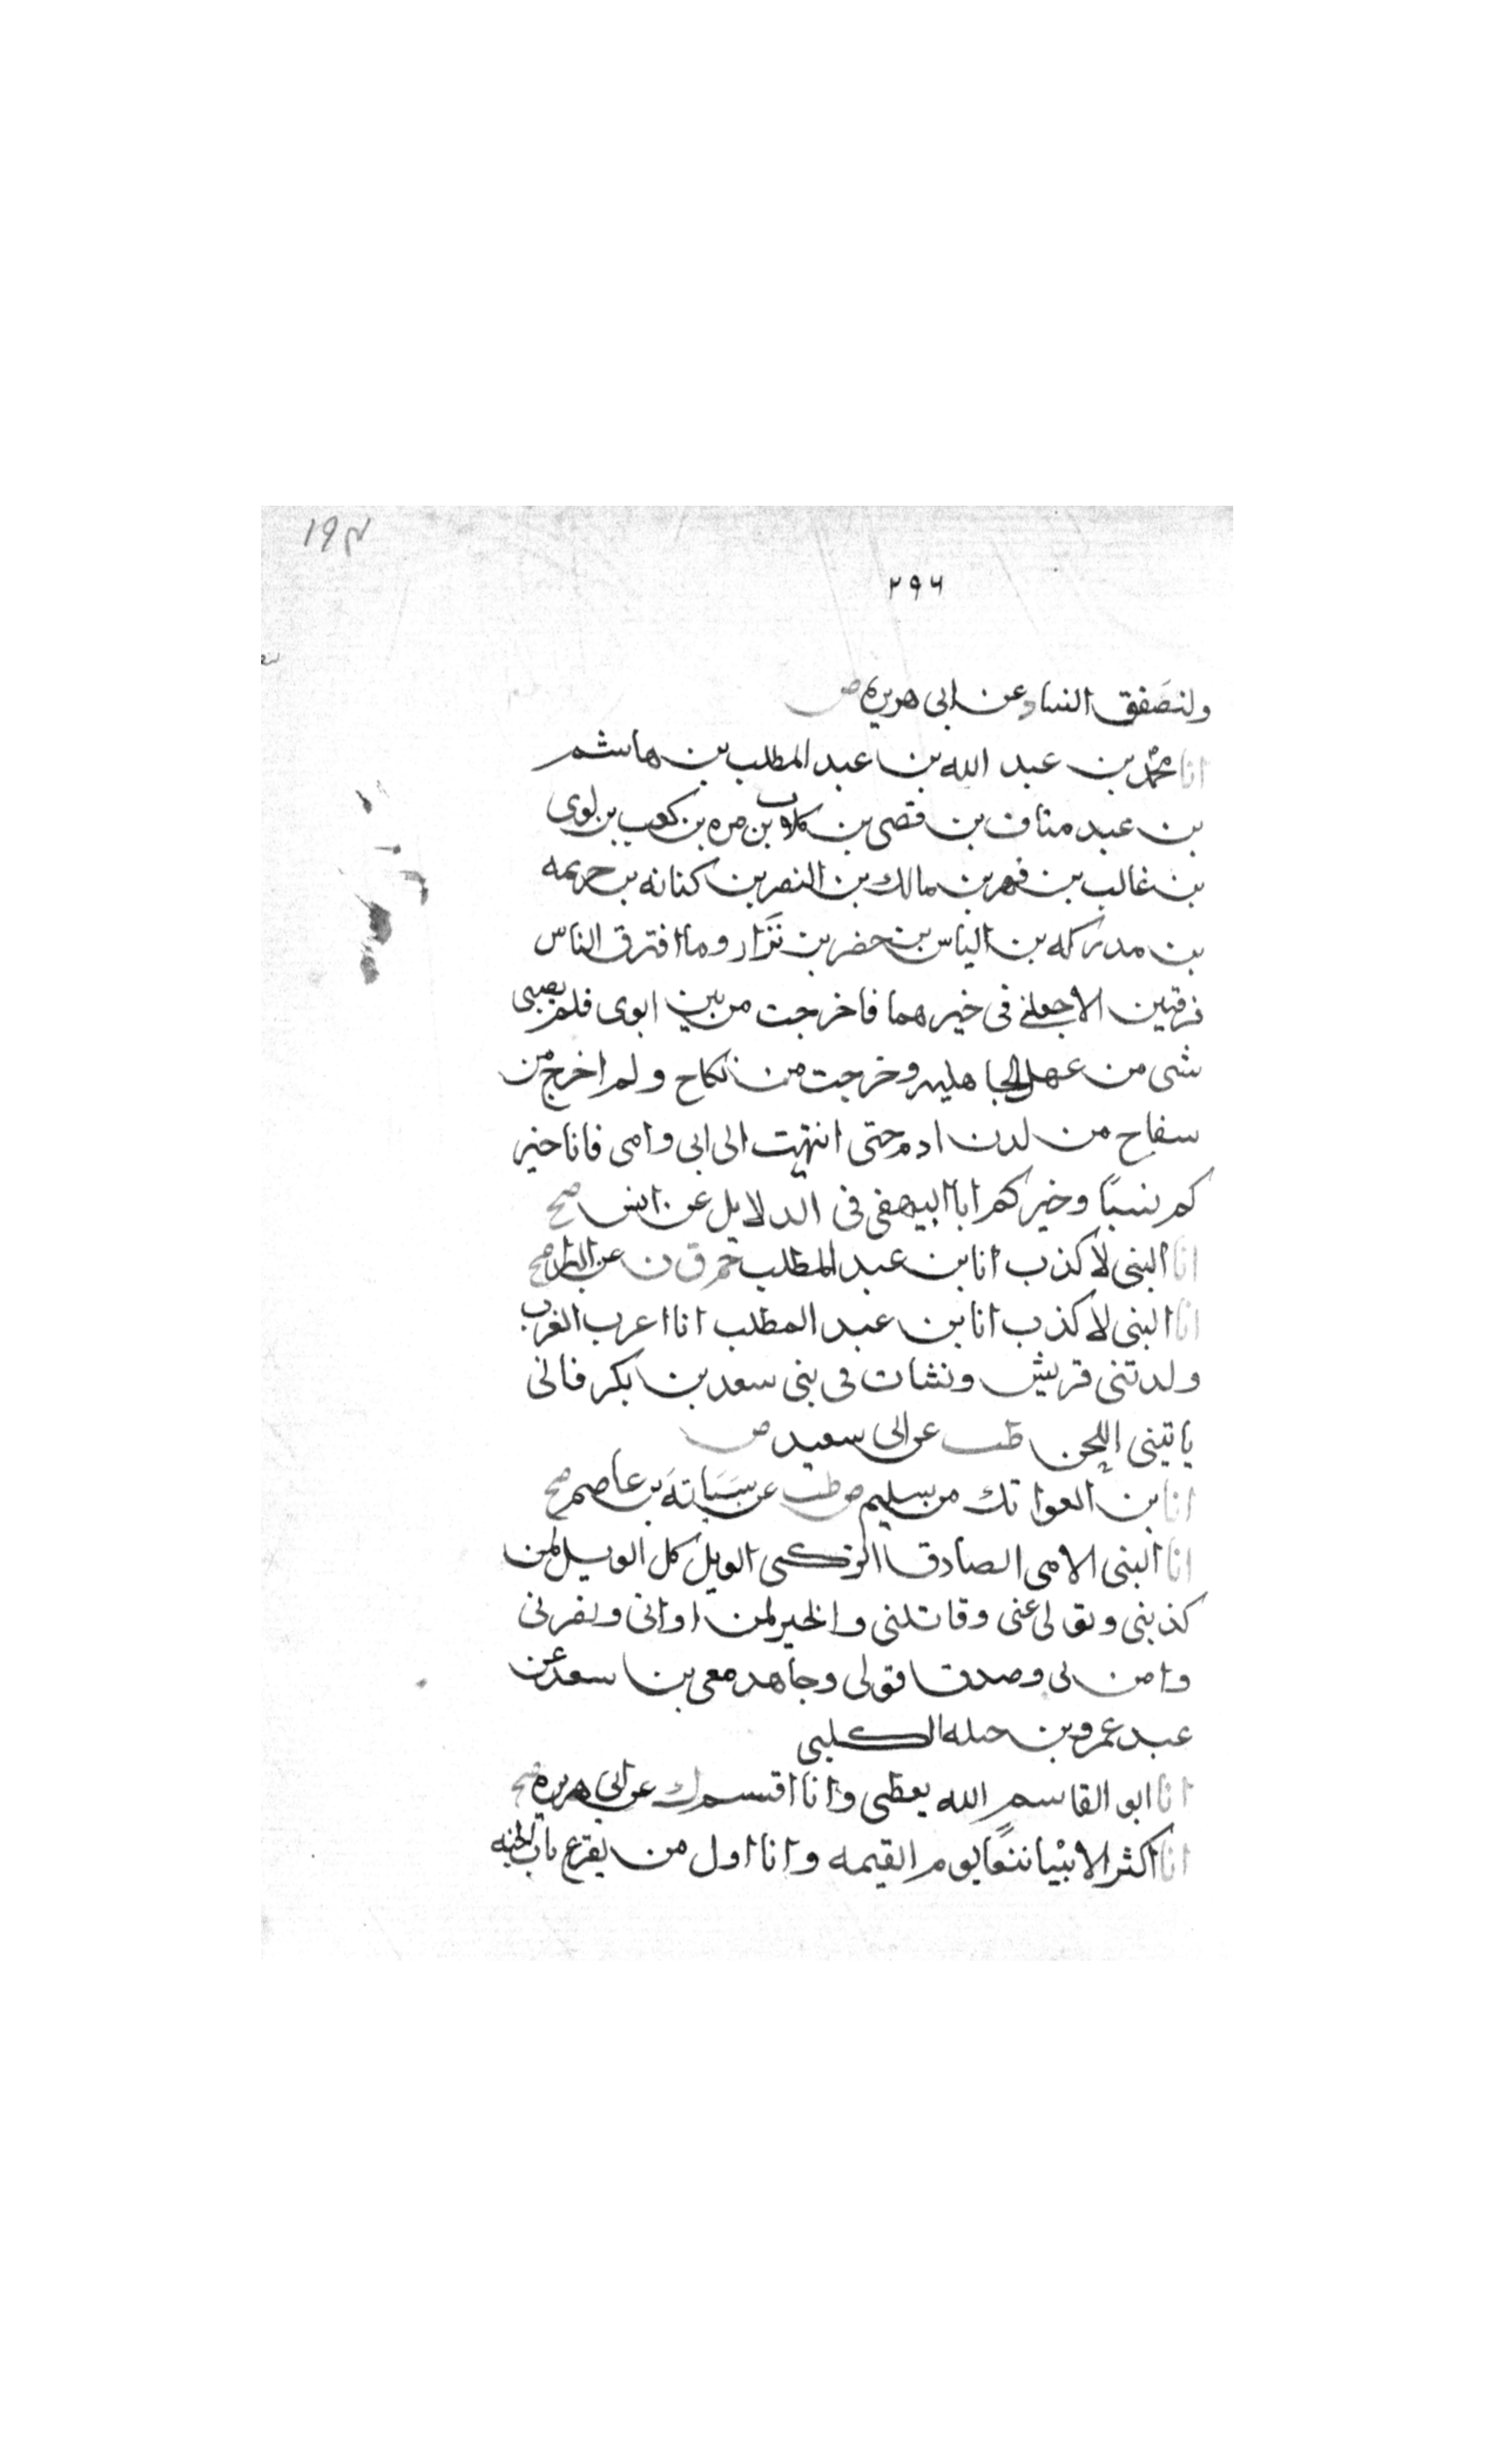 ١٩٨
٢٩٦
ولتصَفق النساد عن ابى هريره ص
انا محمد بن عبد الله بن عبد المطلب بن هاشم
بن عبد مناف بن قصى بن كلاب بن مره بن كعب بن لوى
بن غالب بن فهر بن مالك بن النضر بن كنانه بن خزيمه
بن مدركه بن الياس بن مضر بن نَزَار وما افترق الناس
فرقتين الا جعلنى فى خيرهما فاخرجت من بين ابوى فلم يصبنى
شى من عهد الجاهليه وخرجت من نكاح ولم اخرج من
سفاح من لدن ادم حتى انتهيت الى ابى وامى فانا خير
كم نسبًا وخيركم ابا البيهقى فى الدلايل عن انس صح
انا النبى لا كذب انا بن عبد المطلب حم ق ن عن البرا صح
انا النبى لا كذب انا بن عبد المطلب انا اعرب العرب
ولدتنى قريش ونشات فى بنى سعد بن بكر فانى
ياتينى اللحن طب عن ابى سعيد ص
انا بن العواتك من سليم ص طب عن سَيَابَة بن عاصم صح
انا النبى الامى الصادق الزكى الويل كل الويل لمن
كذبنى وتولى عنى وقاتلنى والخير لمن اوانى ونصرنى
وامن بى وصدق قولى وجاهد معى بن سعد عن
عبد عمرو بن جبله الكلبى
انا ابو القاسم الله يعطى وانا اقسم ك عن ابى هريره صح
انا اكثر الانبيا تبعًا يوم القيمه وانا اول من يقرع باب الجنه